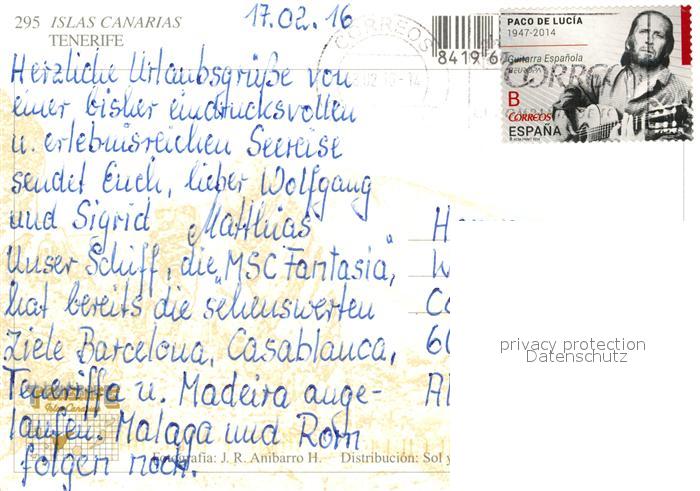 17.02.16
295 ISLAS CANARIAS
TENERIFE
Herzliche Urlaubsgrüße von
einer bisher eindrucksvollen
u. erlebnisreichen Seereise
sendet Euch, lieber Wolfgang
und Sigrid Matthias
Unser Schiff, die „MSC Fantasia“,
hat bereits die sehenswerten
Ziele Barcelona, Casablanca,
Teneriffa u. Madeira ange-
laufen. Malaga und Rom
folgen noch.
Fotografía: J. R. Anibarro H. Distribución: Sol y
Islas Canarias
CORREOS
8419
PACO DE LUCÍA
1947-2014
Guitarra Española
EUROPA
CORREOS
B
CORREOS
ESPAÑA
H
W
Co
60
Al
privacy protection
Datenschutz